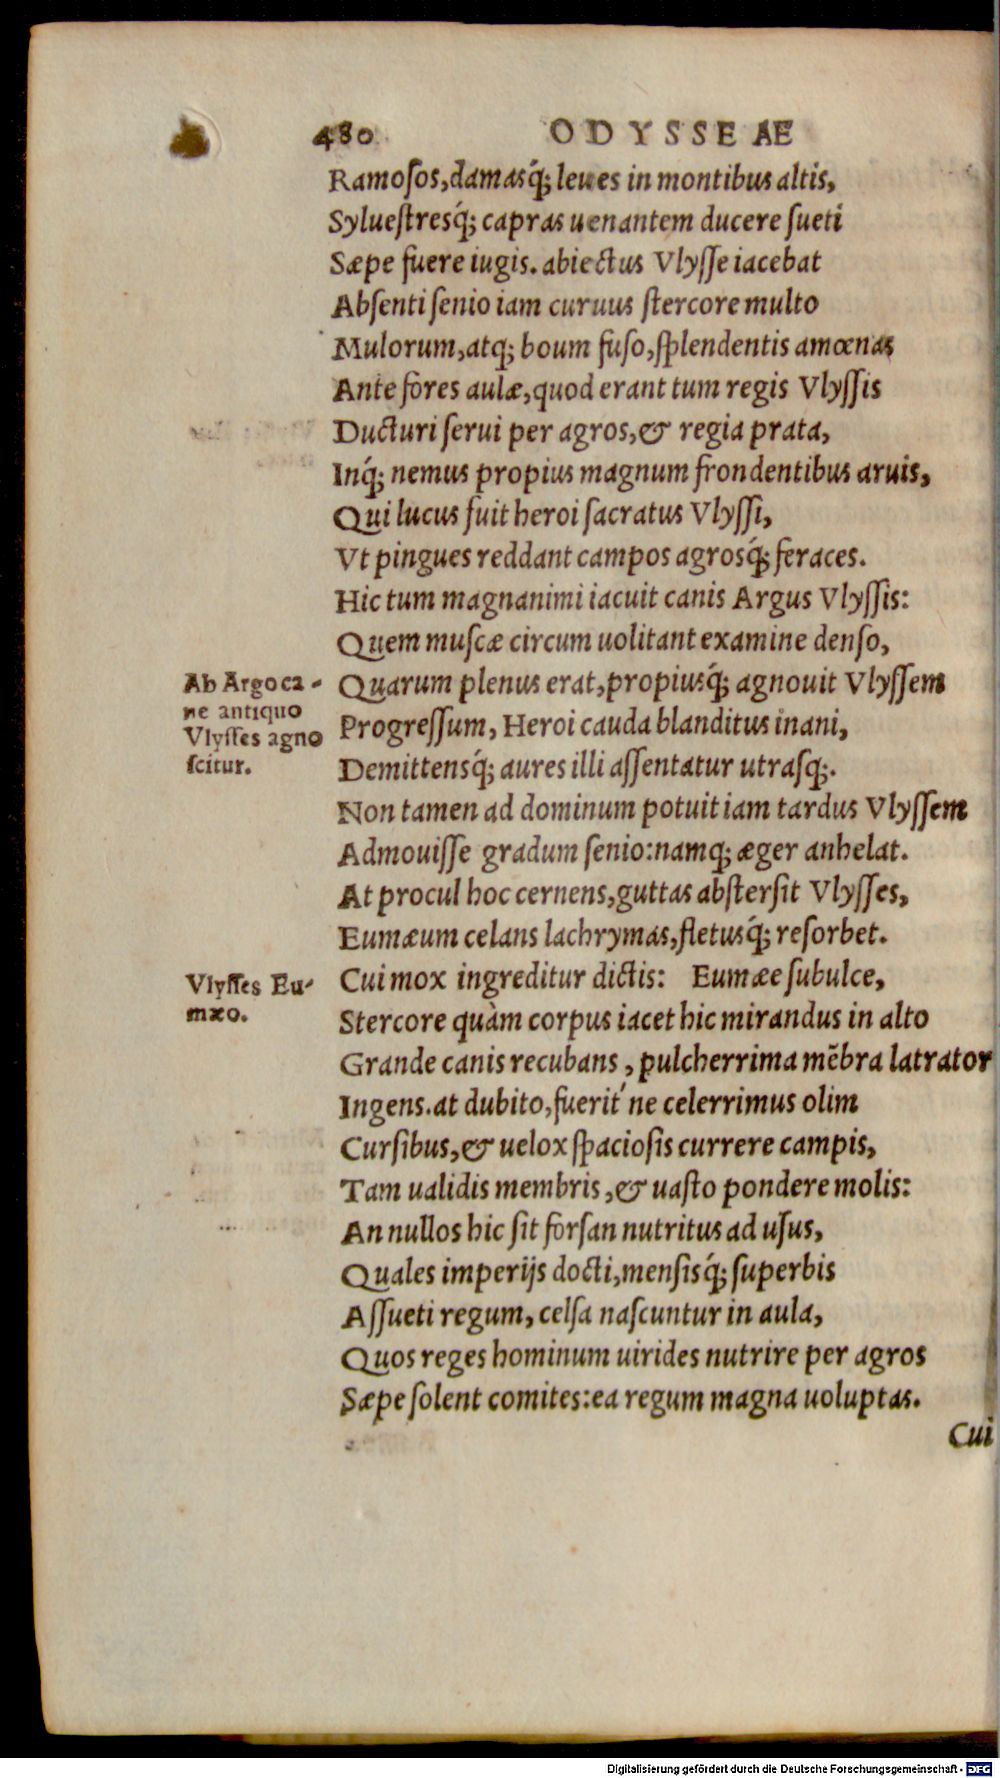 480 ODYSSEAE
Ramoſos,damasq́; leues in montibus altis,
Sylueſtresq́; capras uenantem ducere ſueti
Sæpe fuere iugis. abiectus Vlyſſe iacebat
Abſenti ſenio iam curuus ſtercore multo
Mulorum,atq; boum fuſo,ſplendentis amœnas
Ante fores aulæ,quod erant tum regis Vlyſſis
Ducturi ſerui per agros,& regia prata,
Inq́; nemus propius magnum frondentibus aruis,
Qui lucus fuit heroi ſacratus Vlyſſi,
Vt pingues reddant campos agrosq́; feraces.
Hic tum magnanimi iacuit canis Argus Vlyſſis:
Quem muſcæ circum uolitant examine denſo,
Ab Argo ca-
ne antiquo
Vlyſſes agno
ſcitur.
Quarum plenus erat,propiusq́; agnouit Vlyſſem
Progreſſum, Heroi cauda blanditus inani,
Demittensq́; aures illi aſſentatur utrasq;.
Non tamen ad dominum potuit iam tardus Vlyſſem
Admouiſſe gradum ſenio:namq; æger anhelat.
At procul hoc cernens,guttas abſterſit Vlyſſes,
Eumæum celans lachrymas,fletusq́; reſorbet.
Vlyſſes Eu-
mæo.
Cui mox ingreditur dictis: Eumæe ſubulce,
Stercore quàm corpus iacet hic mirandus in alto
Grande canis recubans , pulcherrima mẽbra latrator
Ingens.at dubito,fuerit´ne celerrimus olim
Curſibus,& uelox ſpacioſis currere campis,
Tam ualidis membris,& uaſto pondere molis:
An nullos hic ſit forſan nutritus ad uſus,
Quales imperijs docti,menſisq́; ſuperbis
Aſſueti regum, celſa naſcuntur in aula,
Quos reges hominum uirides nutrire per agros
Sæpe ſolent comites:ea regum magna uoluptas.
Cui
Digitalisierung gefördert durch die Deutsche Forschungsgemeinschaft - DFG